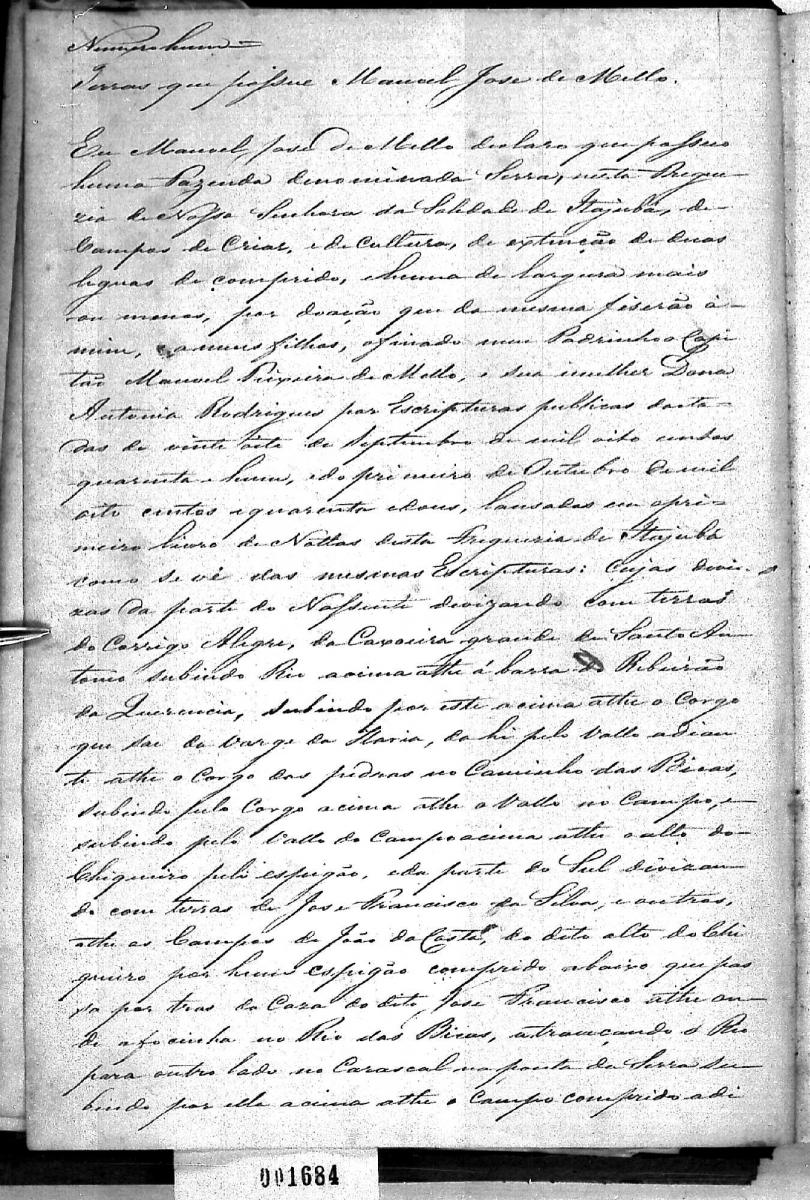 Numero hum =
Terras que possue Manoel Jose de Mello.
Eu Manoel José de Mello declaro que possuo
huma Fazenda denominada Serra, nesta Fregue-
zia de Nossa Senhora da Soledade de Itajubá, de
Campos de Criar, e de Cultura, de extinção de duas
leguas de comprido, e huma de largura mais
ou menos, por doação que da mesma fiserão à
mim, e a meus filhos, o finado meu Padrinho o Capi-
tão Manoel Teixeira de Mello, e sua mulher Dona
Antonia Rodrigues por Escripturas publicas data-
das de vinte oito de Septembro de mil oito centos
quarenta e hum, e do primeiro de Outubro de mil
oito centos e quarenta e dous, lansadas em o pri-
meiro livro de Nottas desta Freguezia de Itajubá
como se vê das mesmas Escripturas: Cujas divi-
zas da parte do Nassente devizando com terras
do Corrigo Alegre, da Caxoeira grande de Santo An-
tonio subindo Rio acima athe á barra do Ribeirão
da Querencia, subindo por este acima athe o Corgo
que sae da varge da Maria, da hi pelo Vallo adian-
te athe o Corgo das pedras no Caminho das Bicas,
subindo pelo Corgo acima athe o Vallo no Campo, e
subindo pelo Vallo do Campo acima athe o alto do
Chiqueiro pelo espigão, e da parte do Sul divizan-
do com terras de Jose Francisco da Silva, e outros,
athe os Campos de João da Costa, do dito alto do Chi
queiro por hum espigão comprido abaixo que pas
sa por tras da Caza do dito Jose Francisco athe on-
de afocinha no Rio das Bicas, atravçando o Rio
para outro lado no Carascal na ponta da Serra su-
bindo por ella acima athe o Campo comprido adi
001684